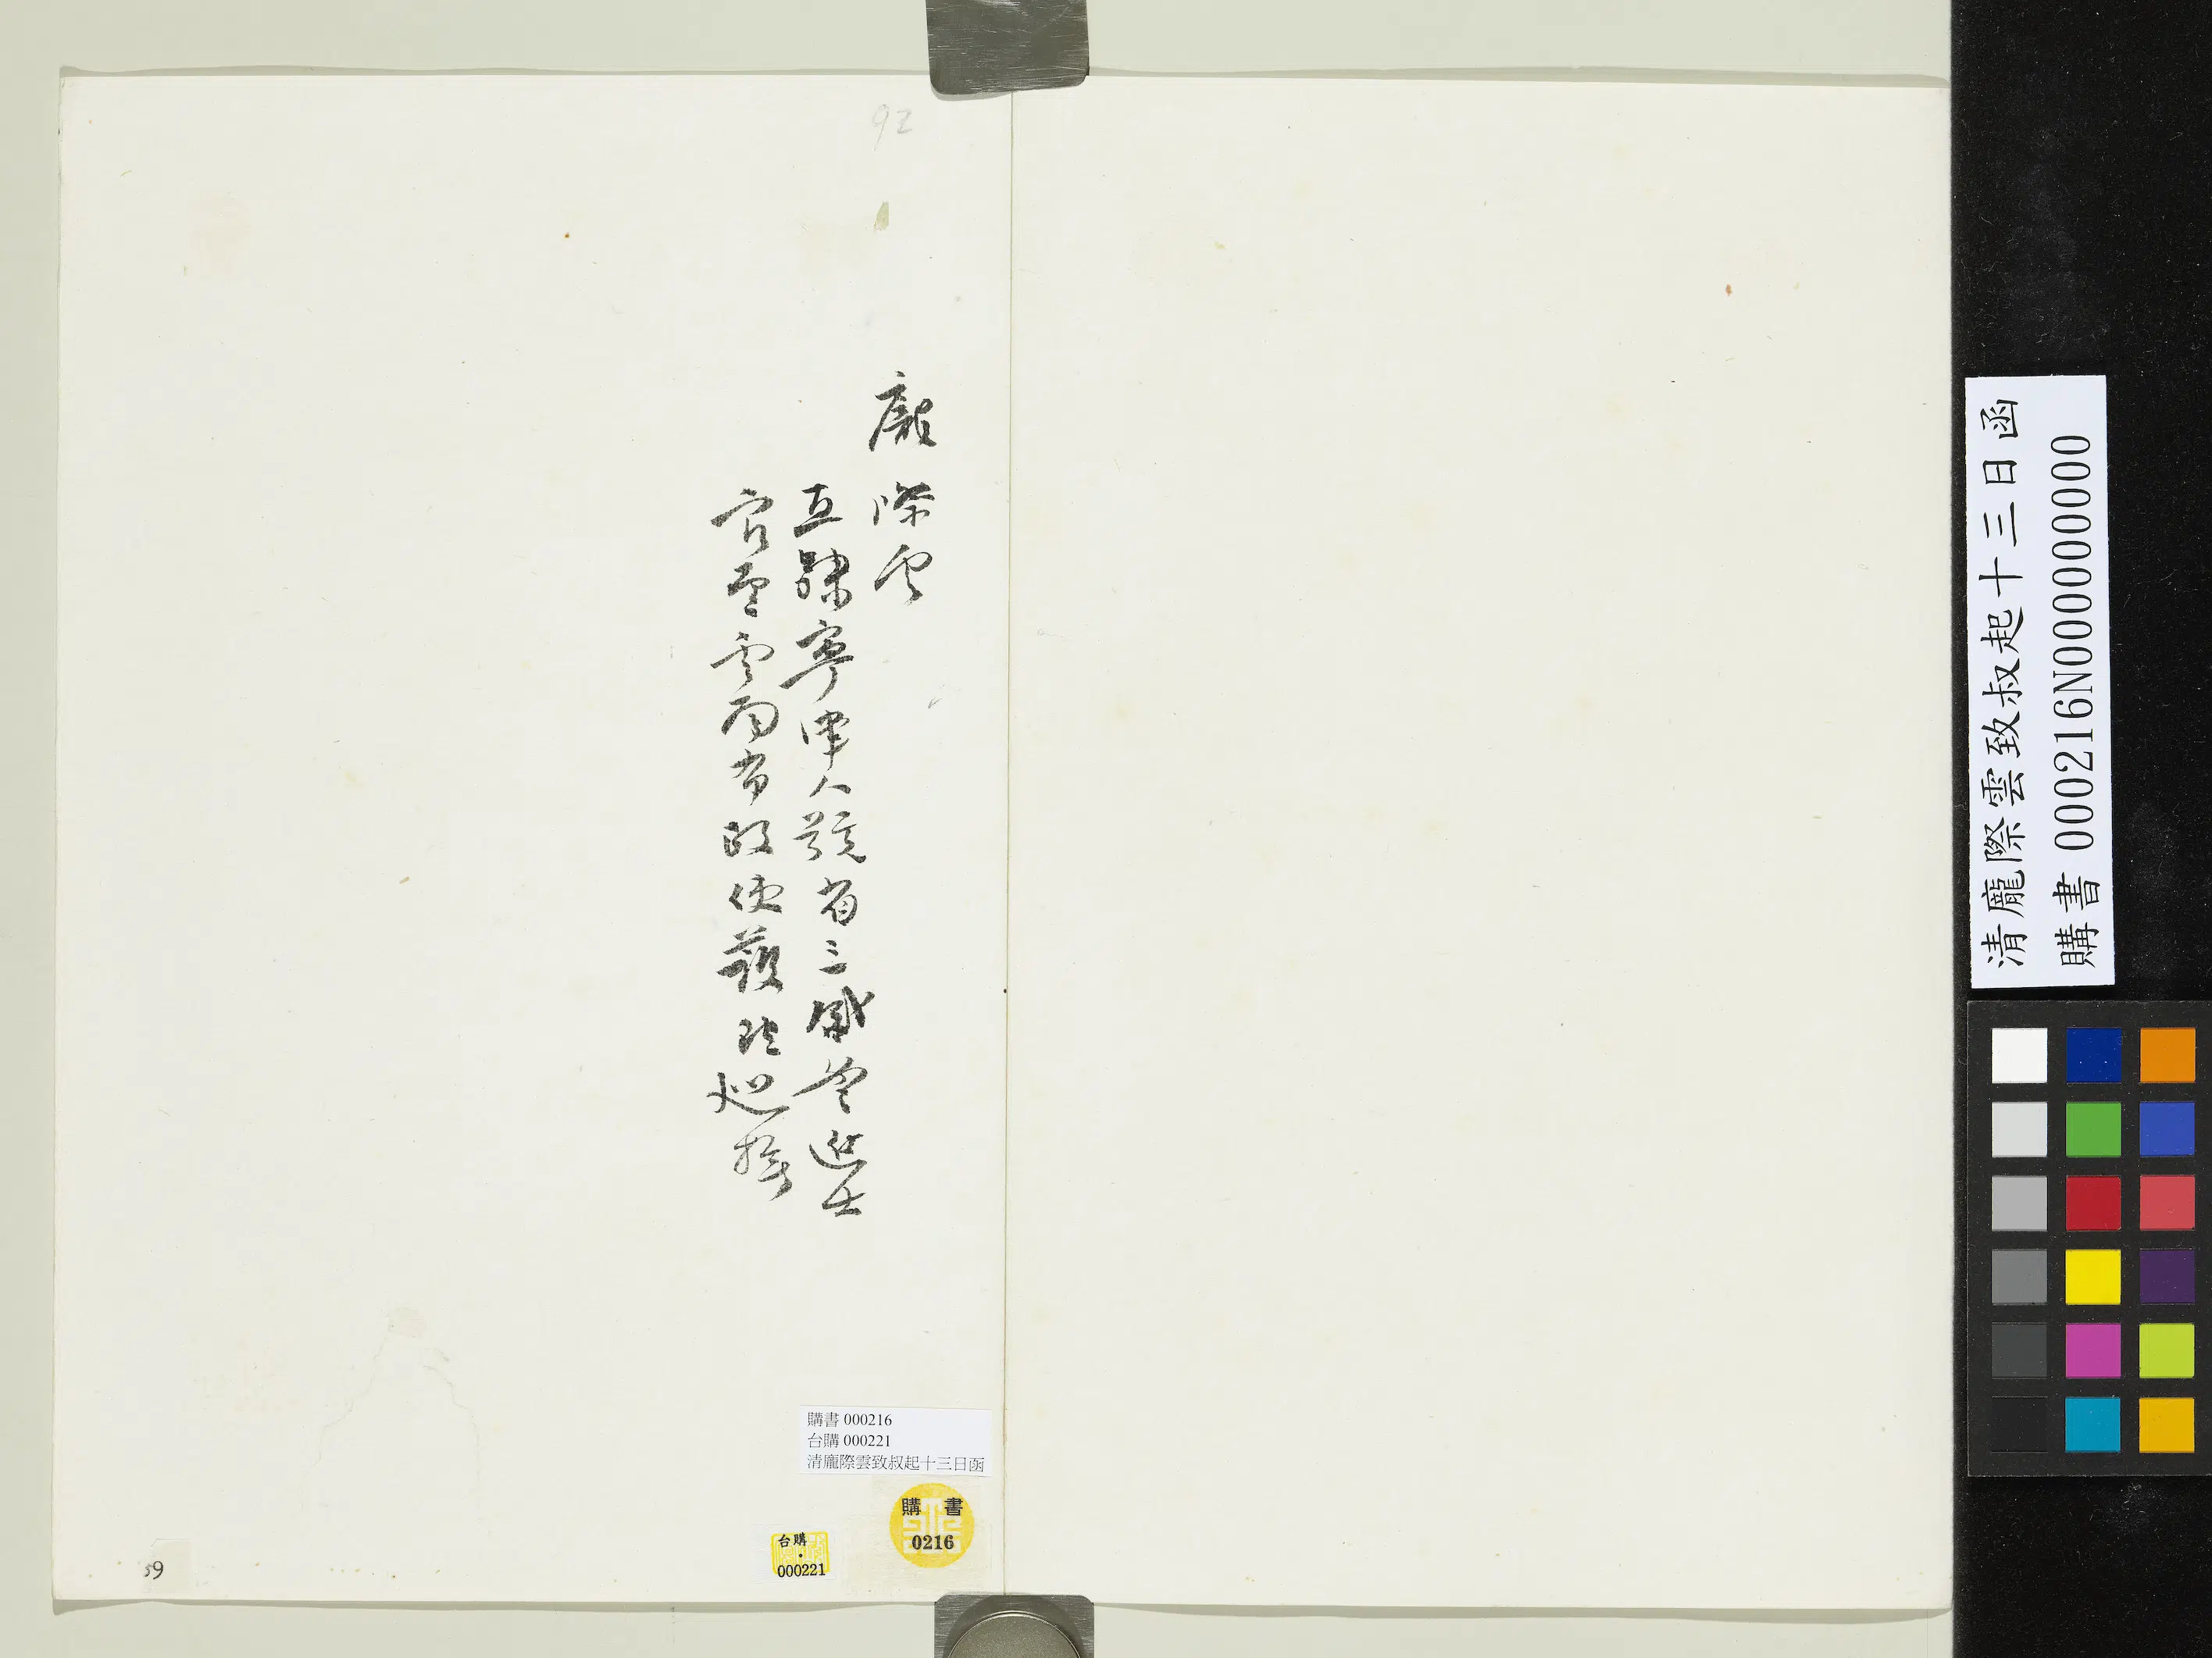 92
龐際雲
直隸寧津人號省三咸豐進士
官至雲南布政使護理巡撫
購書 000216
台購 000221
清龐際雲致叔起十三日函
購書
0216
台購
000221
59
清龐際雲致叔起十三日函
購書 000216N000000000